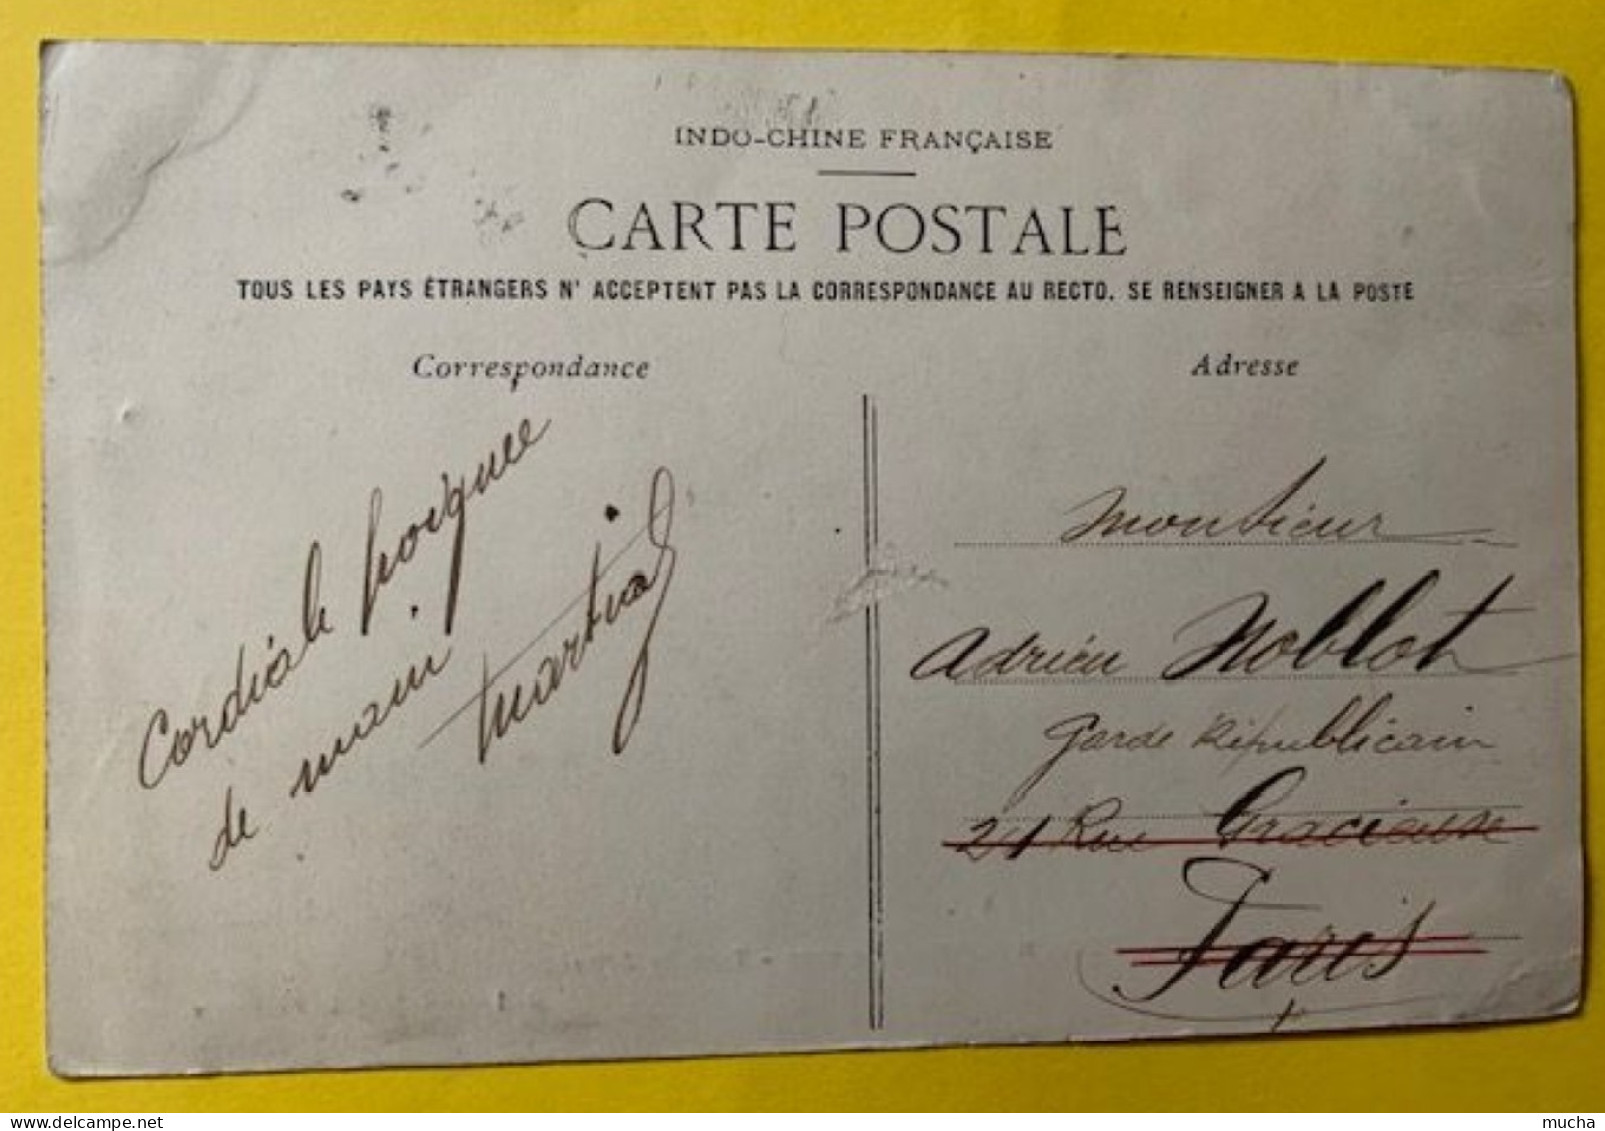 INDO-CHINE FRANÇAISE
CARTE POSTALE
TOUS LES PAYS ÉTRANGERS N' ACCEPTENT PAS LA CORRESPONDANCE AU RECTO. SE RENSEIGNER A LA POSTE
Correspondance
Cordiale poignee
de main
Martial
Adresse
Monsieur
Adrien Noblot
Garde Républicain
21 Rue Gracieuse
Paris
mucha